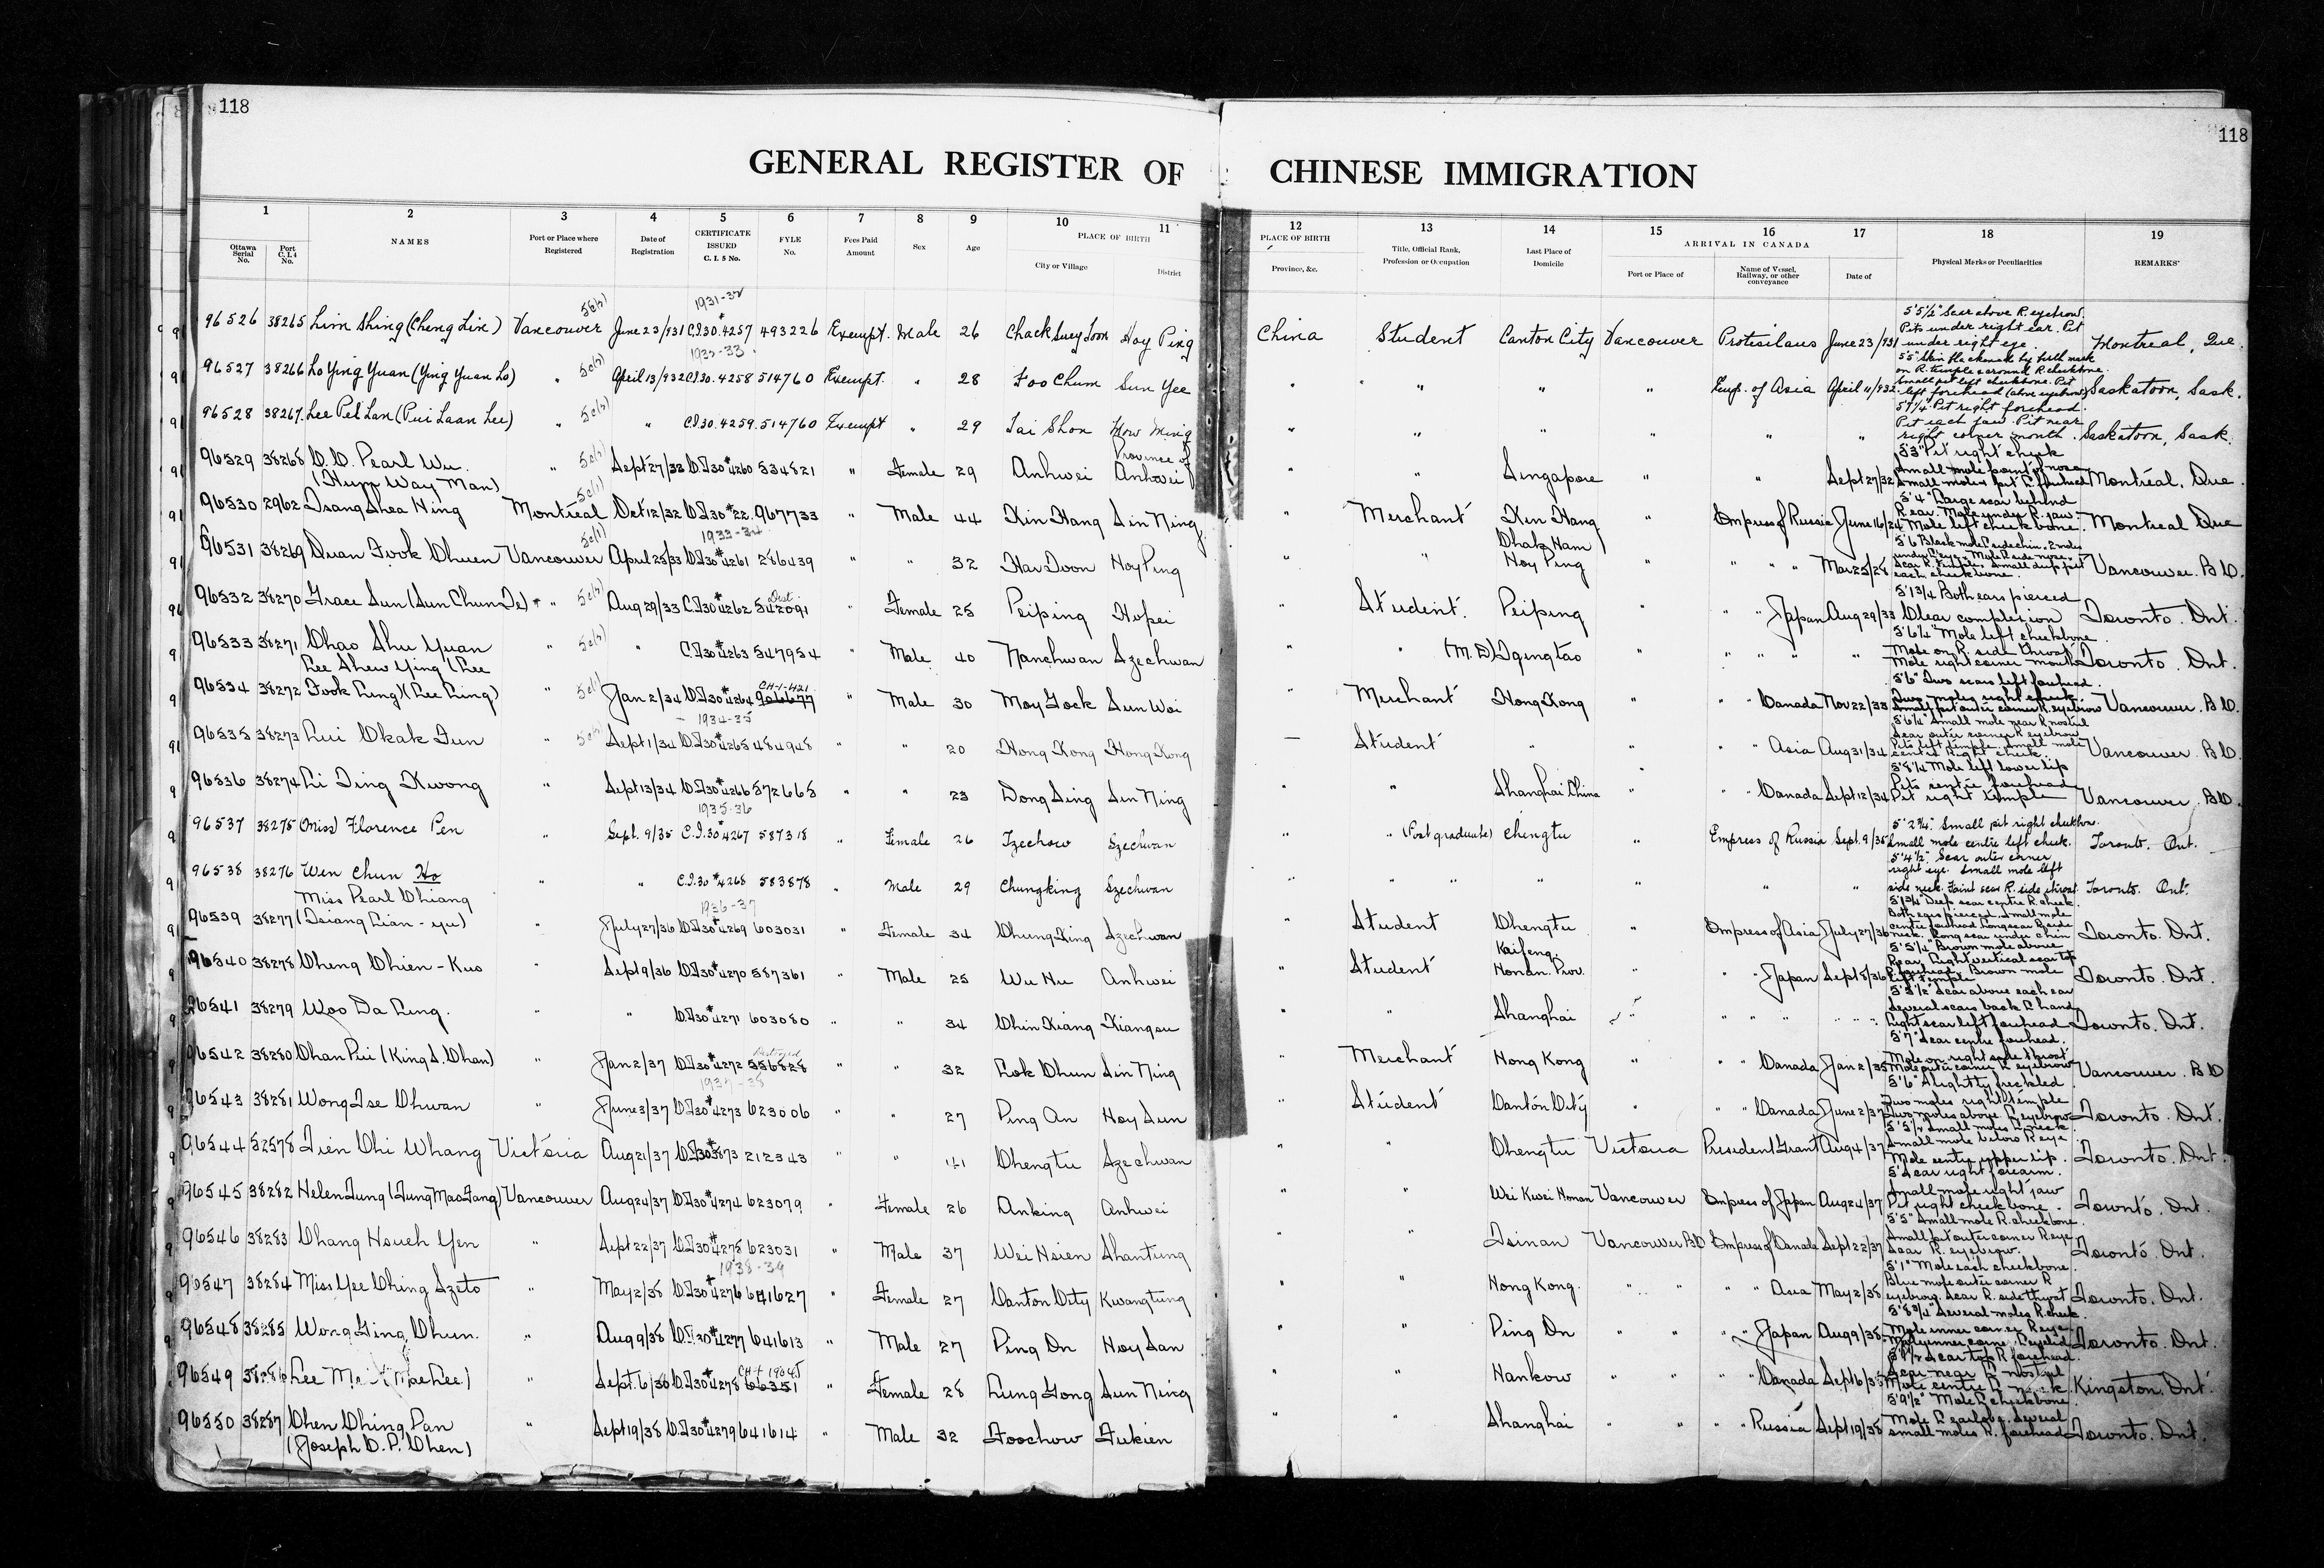 118
118
GENERAL REGISTER OF CHINESE IMMIGRATION
1 2 3 4 5 6 7 8 9 10 11 12 13 14 15 16 17 18 19
Ottawa Serial No. Port C.I.4 No. NAMES Port or Place where Registered Date of Registration CERTIFICATE ISSUED C. I. 5 No. FYLE No. Fees Paid Amount Sex Age PLACE OF BIRTH City or Village District PLACE OF BIRTH Province, &c. Title, Official Rank, Profession or Occupation Last Place of Domicile ARRIVAL IN CANADA Port or Place of Name of Vessel, Railway, or other conveyance Date of Physical Marks or Peculiarities REMARKS
1931-32
96526 38265 Lim Shing (Cheng Lin) Vancouver 5c(b) June 23/931 C.I.30.4257 493226 Exempt. Male 26 Chack Suey Hoy Ping China Student Canton City Vancouver Protesilaus June 23/931 5'5½" Scar above R. eyebrow. Pits under right ear. Pit under right eye. Montreal, Que.
1932-33
96527 38266 Lo Ying Yuan (Ying Yuan Lo) " April 13/932 C.I.30.4258 514760 Exempt. " 28 Foo Chum Sun Yee " " " " Emp. of Asia April 11/932 Saskatoon, Sask.
96528 38267 Lee Pei Lan (Pui Laan Lee) " " C.I.30.4259 514760 Exempt " 29 Tai Shon " " " " " " 5'7¼" Pit right forehead. Pit each jaw. Pit near right corner mouth. Saskatoon, Sask.
96529 38268 C.C. Pearl Wu. " Sept 27/32 C.I.30#4260 534821 " Female 29 Anhwei Province of Anhwei " " Singapore " " Sept 27/32 5'3" Pit right cheek Small mole point of nose Montreal. Que.
(Hupp Way Man)
96530 2962 Tsang Shea Hing Montreal Oct 12/32 C.I.30#22. 967733 " Male 44 Kin Hang Sin Ning " Merchant Kin Hang " Empress of Russia June 16/24 5'4" Large scar behind R. ear. Mole under R. jaw. Mole left cheekbone. Montreal Que
1933-34
96531 38269 Quan Fook Chuen Vancouver April 25/33 C.I.30#4261 286439 " " 32 Hoy Ping " " Chak Ham Hoy Ping " " " " Vancouver. B.C.
96532 38270 Grace Sun (Sun Chun Je) " Aug 29/33 C.I.30#4262 542091 " Female 25 Peiping Hopei " Student. Peiping " " " Japan Aug 29/33 5'1¾ Both ears pierced Clear complexion Toronto. Ont.
96533 38271 Chao Shu Yuan " " C.I.30#4263 547954 " Male 40 Nanchwan Szechwan " " (M.D) Tsingtao " " " " " 5'6¼" Mole left cheekbone. Mole on R. side throat Mole right corner mouth Toronto. Ont.
Lee Shew Ying (Lee
96534 38272 Fook Lung) (Lee Ling) " Jan 2/34 C.I.30#4264 CH-1-421 906677 " Male 30 Moy Gock Sun Woi " Merchant Hong Kong " " Canada Nov 22/33 5'6" Two scars left forehead. Two moles right cheek. Vancouver. B.C.
1934-35
96535 38273 Lui Chak Fun " Sept 1/34 C.I.30#4265 484948 " " 20 Hong Kong Hong Kong — Student " " " " Asia Aug 31/34 5'6¼" Small mole near R. nostril Scar outer corner R. eyebrow Vancouver. B.C.
96536 38274 Li Ting Kwong " Sept 13/34 C.I.30#4266 572665 " " 23 Dong Sing Sin Ning " " Shanghai China " " " Canada Sept 12/34 5'8¼ Mole left lower lip Pits centre forehead Pit right temple Vancouver. B.C.
1935-36
96537 38275 (Miss) Florence Pen " Sept. 9/35 C.I.30#4267 587318 " Female 26 Tzechow Szechwan " " (Post graduate) Chengtu " Empress of Russia Sept. 9/35 5'2¾". Small pit right cheekbone. Small mole centre left cheek. Toronto. Ont.
96538 38276 Wen Chun Ho " " C.I.30#4268 583878 " Male 29 Chungking Szechwan " " " " " " 5'4½" Scar outer corner right eye. Small mole left side neck. Faint scar R. side throat Toronto. Ont.
1936-37
Miss Pearl Chiang
96539 38277 (Tsiang Lian-yu) " July 27/36 C.I.30#4269 603031 " Female 34 Chung King Szechwan " Student Chengtu " Empress of Asia July 27/36 5'1¾" Deep scar centre R. cheek. Both ears pierced. Toronto. Ont.
96540 38278 Cheng Chien-Kuo " Sept 9/36 C.I.30#4270 587361 " Male 25 Wu Hu Anhwei " Student Kaifeng, Honan. Prov. " " " Japan Sept 8/36 5'5¼" Brown mole above R. ear. Toronto. Ont.
96541 38279 Woo Da Ling. " " C.I.30#4271 603080 " " 34 Chin Kiang Kiangsu " " Shanghai " " " " " 5'5½" Scar above each ear Several scars back L. hand Light scar left forehead Toronto. Ont.
96542 38280 Chan Pui (King S. Chan) " Jan 2/37 C.I.30#4272 556828 " " 32 Lok Chun Sin Ning " Merchant Hong Kong " " " Canada Jan 2/35 5'7" Scar centre forehead. Mole on right side throat Mole outer corner R. eyebrow Vancouver. B.C
1937-38
96543 38281 Wong Tse Chwan " June 3/37 C.I.30#4273 623006 " " 27 Ping On Hoy Sun " Student Canton City " " " Canada June 2/37 5'6" Slightly freckled Two moles right temple Two moles above L. eyebrow Toronto. Ont.
96544 52578 Tien Chi Whang Victoria Aug 21/37 212343 " " 41 Chengtu Szechwan " " Chengtu Victoria President Grant Aug 4/37 Small mole below R. eye Mole centre upper lip. Toronto. Ont.
96545 38282 Helen Tung (Tung Mao Fang) Vancouver Aug 24/37 C.I.30#4274 623079 " Female 26 Anking Anhwei " " Wei Kwei Honan Vancouver Empress of Japan Aug 24/37 5' Scar right forearm. Small mole right jaw Pit right cheekbone. Toronto. Ont.
96546 38283 Chang Hsueh Yen " Sept 22/37 C.I.30#4275 623031 " Male 37 Wei Hsien Shantung " " Tsinan Vancouver B.C Empress of Canada Sept 22/37 5'5" Small mole R. cheekbone. Small pit outer corner R. eye Scar R. eyebrow. Toronto. Ont.
1938-39
96547 38284 Miss Yee Ching Szeto " May 2/38 C.I.30#4276 641627 " Female 27 Canton City Kwangtung " " Hong Kong. " " " " Asia May 2/38 5'1" Mole each cheekbone. Blue mole outer corner R eyebrow. Scar R. side throat Toronto. Ont.
96548 38285 Wong Ging Chun. " Aug 9/38 C.I.30#4277 641613 " Male 27 Ping On Hoy San " " Ping On " " " " Japan Aug 9/38 5'8¾" Several moles R. cheek. Mole inner corner R. eye Toronto. Ont.
96549 38286 Lee (Mae Lee) " Sept. 6/38 C.I.30#4278 66351 " Female 28 Lung Gong Sun Ning " " Hankow " " " " Canada Sept 6/38 Scar near R. nostril Kingston. Ont.
96550 38287 Chen Ching Pan " Sept 19/38 C.I.30#4279 641614 " Male 32 Foochow Fukien " " Shanghai " " " " Russia Sept 19/38 5'9½" Mole R. cheekbone. Mole R. earlobe. Several small moles R. forehead Toronto. Ont.
(Joseph C. P. Chen)